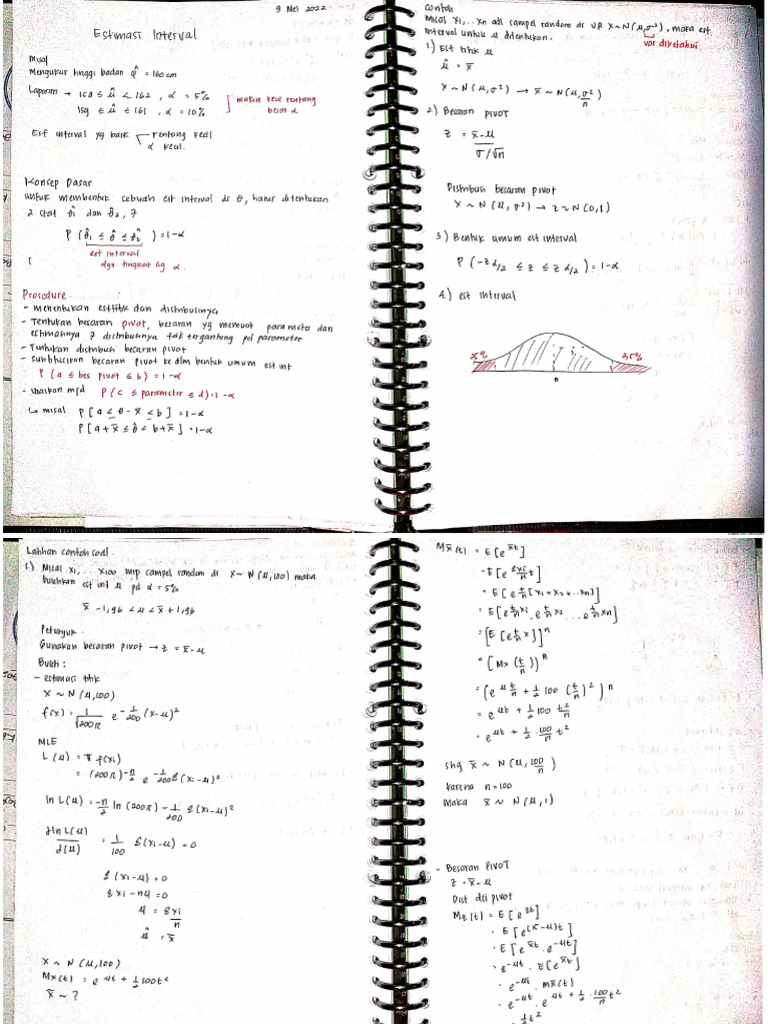 9 Mei 2022
Estimasi Interval
Misal
Mengukur tinggi badan φ̂ = 160 cm
Laporan → 158 ≤ μ̂ < 162 , α = 5%
159 ≤ μ̂ ≤ 161 , α = 10%
makin kecil rentang
besar α
Est interval yg baik
rentang kecil
α kecil.
Konsep Dasar
untuk membentuk sebuah est interval dr θ, harus ditentukan
2 stat θ̂1 dan θ̂2, ∋
P (θ̂1 ≤ θ ≤ θ̂2) = 1-α
est interval
dgn tingkat sig α.
Procedure
- menentukan est titik dan distribusinya
- Tentukan besaran pivot, besaran yg memuat parameter dan
estimatnya ∋ distribusinya tak tergantung pd parameter
- Tuntukan distribusi besaran pivot
- substitusikan besaran pivot ke dlm bentuk umum est int
P (a ≤ bes pivot ≤ b) = 1-α
- uraikan mjd P(c ≤ parameter ≤ d) = 1-α
↳ misal P[a ≤ θ - x̄ ≤ b] = 1-α
P[a + x̄ ≤ θ̂ < b + x̄] = 1-α
Contoh
Misal X1,... Xn adl sampel random dr VR X ~ N(μ,σ²), maka est
interval untuk μ ditentukan.
var diketahui
1.) Est titik μ
μ̂ = x̄
X ~ N(μ,σ²) → x̄ ~ N(μ, σ²/n)
2) Besaran pivot
z = x̄-μ
σ/√n
Distribusi besaran pivot
X ~ N(μ, σ²) → z ~ N(0,1)
3) Bentuk umum est interval
P(-zα/2 ≤ z ≤ zα/2) = 1-α
4.) est interval
0
Latihan contoh soal.
1.) Misal X1,... X100 mrp sampel random dr X ~ N(μ,100) maka
buktikan est int μ pd α = 5%
x̄ - 1,96 < μ < x̄ + 1,96
Petunjuk.
Gunakan besaran pivot → z = x̄-μ
Bukti :
- estimasi titik
X ~ N(μ,100)
f(x) = 1/√200π e^-1/200 (x-μ)²
MLE
L(μ) = π f(xi)
= (200π)^-n/2 e^-1/200 Σ(xi-μ)²
ln L(μ) = -n/2 ln(200π) - 1/200 Σ(xi-μ)²
∂ln L(μ)/∂(μ) = 1/100 Σ(xi-μ) = 0
Σ(xi-μ) = 0
Σxi - nμ = 0
μ = Σxi/n
μ̂ = x̄
X ~ N(μ,100)
Mx(t) = e^μt + 1/2 100t²
x̄ ~ ?
Mx̄(t) = E[e^x̄t]
= E[e^Σxi/n t]
= E[e^t/n [x1+x2+...xn]]
= E[e^t/n x1 . e^t/n x2 ... e^t/n xn]
= [E[e^t/n x]]^n
= [Mx(t/n)]^n
= (e^μ t/n + 1/2 100 (t/n)²)^n
= e^μt + 1/2 100 t²/n
= e^μt + 1/2 . 100/n t²
shg x̄ ~ N(μ, 100/n)
karena n = 100
maka x̄ ~ N(μ,1)
- Besaran PIVOT
z = x̄-μ
Dist dri pivot
Mz(t) = E[e^zt]
= E[e^(x̄-μ)t]
= E[e^x̄t . e^-μt]
= e^-μt . E[e^x̄t]
= e^-μt . Mx̄(t)
= e^-μt . e^μt + 1/2 . 100/n t²